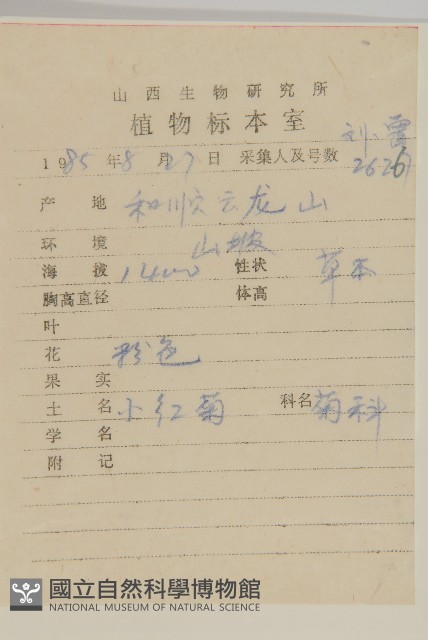 山西生物研究所
植物标本室
刘
1985年8月27日 采集人及号数 2626
产地 和顺云龙山
环境 山坡
海拔 1400 性状 草本
胸高直径 体高
叶
花 粉色
果实
土名 小红菊 科名 菊科
学名
附记
國立自然科學博物館
NATIONAL MUSEUM OF NATURAL SCIENCE